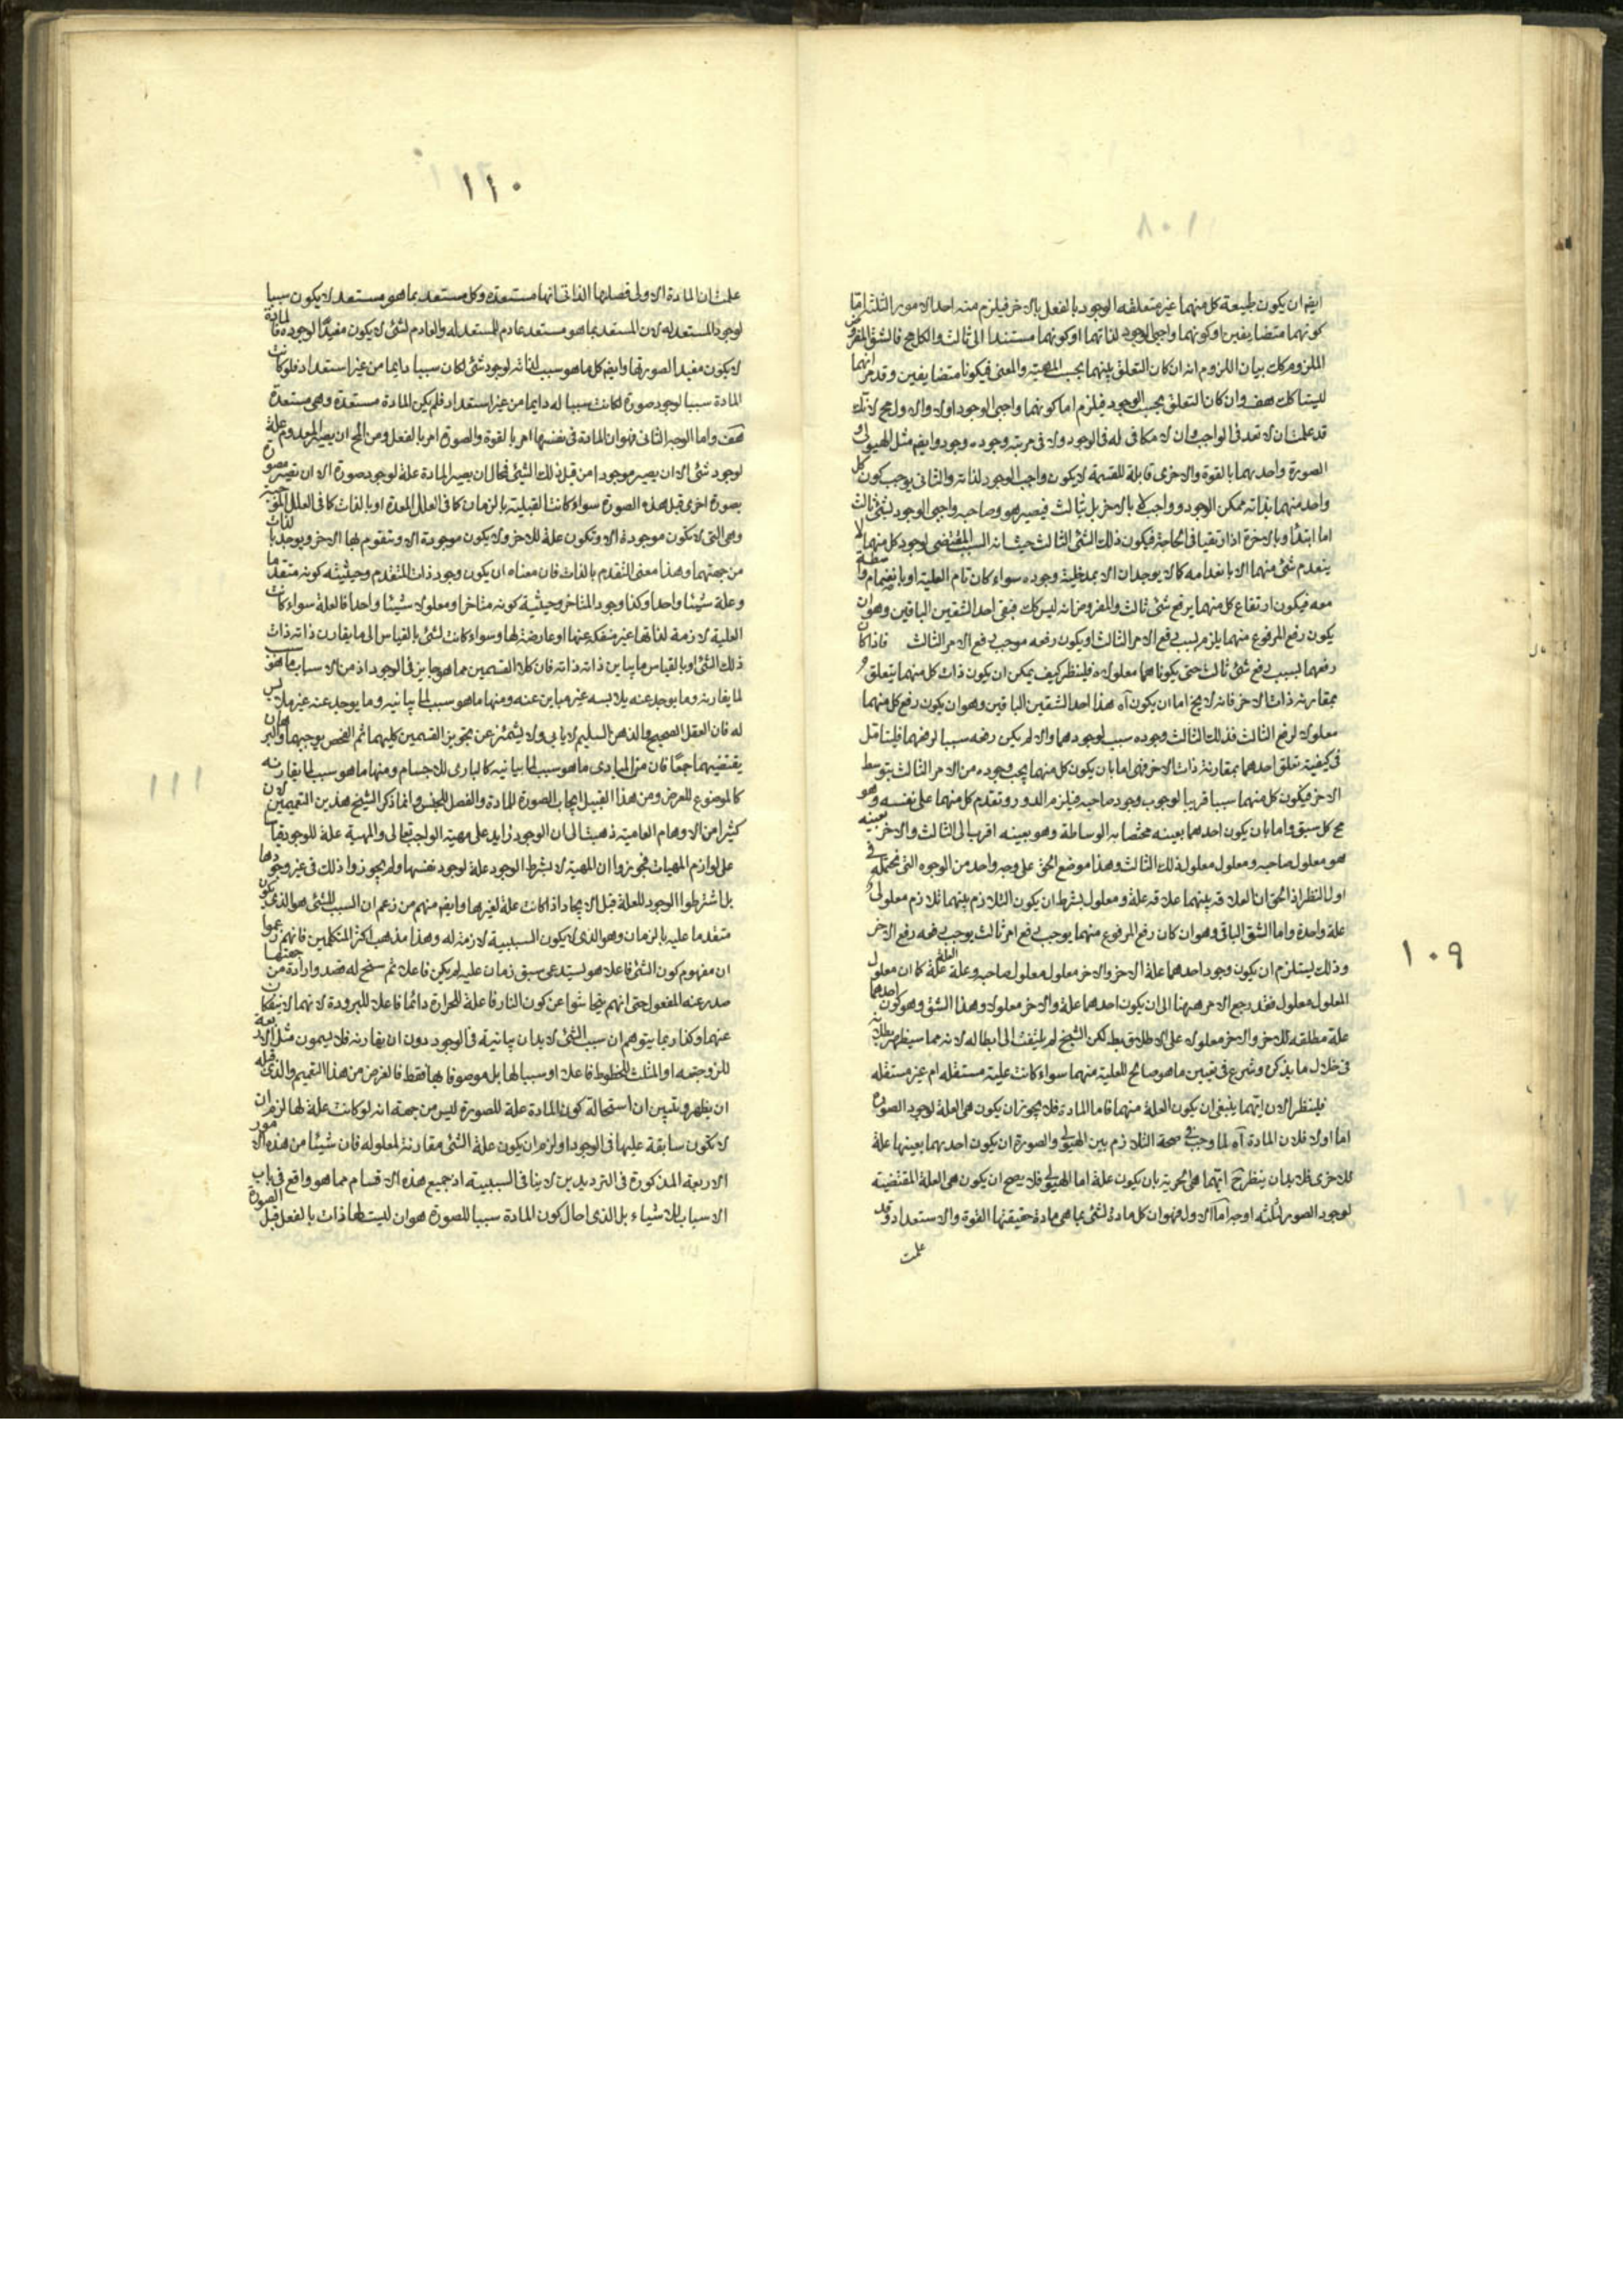 ١٠٩
ايضا ان يكون طبيعة كل منهما غير متعلقة الوجود بالفعل بالاخر فيلزم منه احد الامور الثلثة اما
كونهما متضايفين او كونهما واجبى الوجود لذاتهما او كونهما مستندا الى ثالث والكل مح فالشق المفروض
الملزوم كك بيان اللزوم انه ان كان التعلق بينهما بحسب المهية والمعنى فيكونا متضايفين وقد مر انهما
ليستا كك هف وان كان التعلق بحسب الوجود فيلزم اما كونهما واجبى الوجود اولا والاول مح لانك
قد علمت ان لا تعدد فى الواجب وان لا مكافى له فى الوجود ولا فى مرتبة وجوده وجود وايضا مثل الهيولى و
الصورة واحديهما بالقوة والاخرى قابلة للقسمة لا يكون واجب الوجود لذاته والثانى يوجب كون كل
واحد منهما بذاته ممكن الوجود وواجب لا بالاخر بل بثالث فيصير هو وصاحبه واجبى الوجود بشئ ثالث
اما ابتداء وبالاخرة اذا ارتقيا فى الحاجة فيكون ذلك الشئ الثالث حيث انه السبب المقتضى لوجود كل منهما لا
ينعدم شئ منهما الا بانعدامه كما لا يوجدان الا بمدخلية وجوده سواء كان تام العلية او بانضمام واسطة
معه فيكون ارتفاع كل منهما برفع شئ ثالث والمفروض انه ليس كك فبقى احد الشقين الباقين وهو ان
يكون رفع المرفوع منهما يلزم بسبب رفع الامر الثالث او يكون رفعه موجب رفع الامر الثالث فاذا كان
رفعهما بسبب رفع شئ ثالث حتى يكونا هما معلولاه فلينظر كيف يمكن ان يكون ذات كل منهما يتعلق و
بمقارنة ذات الاخر فانه لا يخ اما ان يكون آه هذا احد الشقين الباقين وهو ان يكون رفع كل منهما
معلولا لرفع الثالث فذلك الثالث وجوده سبب لوجودهما والا لم يكن رفعه سببا لرفعهما فليتامل
فى كيفية تعلق احدهما بمقارنة ذات الاخر فهى اما بان يكون كل منهما يجب وجوده من الامر الثالث بتوسط
الاخر فيكون كل منهما سببا قريبا لوجوب وجود صاحبه فيلزم الدور وتقدم كل منهما على نفسه وهو
مح كل سبق واما بان يكون احدهما بعينه مختصا به الوساطة وهو بعينه اقرب الى الثالث والاخر بعينه
هو معلول صاحبه ومعلول معلول ذلك الثالث وهذا موضع الحق على وجه واحد من الوجوه التى نحتمله فى
اول النظر اذ الحق ان العلاقه بينهما علاقه علة ومعلول بشرط ان يكون التلازم بينهما تلازم معلولى و
علة واحدة واما الشق الباقى وهو ان كان رفع المرفوع منهما يوجب رفع امر ثالث يوجب رفعه رفع الاخر
وذلك يستلزم ان يكون وجود احدهما علة الاخر والاخر معلول معلول صاحبه وعلة العلة علة كما ان معلول
المعلول معلول فقد رجع الامر ههنا الى ان يكون احدهما علة والاخر معلولا وهذا الشق وهو كون احدهما
علة مطلقه للاخر والاخر معلولا على الاطلاق بط لكن الشيخ لم يلتفت الى ابطاله لانه مما سيظهر بطلانه
فى خلال ما يذكره وشرع فى تعيين ما هو صالح للعلية منهما سواء كانت علية مستقله ام غير مستقله
فلينظر الان ايتهما ينبغى ان يكون العلة منهما فاما المادة فلا يجوز ان يكون هى العلة لوجود الصورة
اما اولا فلان المادة آه لما وجب فى صحة التلازم بين الهيولى والصورة ان يكون احديهما بعينها علة
للاخرى فلا بد ان ينظر ح ايتهما هى الحرية بان يكون علة اما الهيولى فلا يصح ان يكون هى العلة المقتضية
لوجود الصورة لثلثه اوجه اما الاول فهو ان كل مادة لشئ بما هى مادة حقيقتها القوة والاستعداد وقد
علمت
١١٠
علمت ان المادة الاولى فصلها الذاتى انها مستعدة وكل مستعد بما هو مستعد لا يكون سببا
لوجود المستعد له لان المستعد بما هو مستعد عادم للمستعد له والعادم لشئ لا يكون مفيدا لوجوده فالمادة
لا يكون مفيدا لصورتها وايضا كل ما هو سبب لذاته لوجود شئ لكان سببا دايما من غير استعداد فلو كانت
المادة سببا لوجود صورة لكانت سببا له دايما من غير استعداد فلم يكن المادة مستعدة وهى مستعدة
هف واما الوجه الثانى فهو ان المادة فى نفسها امر بالقوة والصورة امر بالفعل ومن المح ان يصير المعدوم علة
لوجود شئ الا ان يصير موجودا من قبل ذلك الشئ فحال ان يصير المادة علة لوجود صورة الا ان تصير مصورة
بصورة اخرى قبل هذه الصورة سواء كانت القبلية بالزمان كما فى العلل المعدة او بالذات كما فى العلل
وهى التى لا تكون موجودة الا وتكون علة للاخر ولا يكون موجودة الا وتتقوم بها الاخر ويوجد بالذات
من جهتهما وهذا معنى التقدم بالذات فان معناه ان يكون وجود ذات المتقدم وحيثيته كونه متقدما
وعلة شيئا واحدا وكذا وجود المتاخر وحيثية كونه متاخرا ومعلولا شيئا واحدا فالعلة سواء كانت
العلية لازمة لذاتها غير منفكه عنها او عارضة لها وسواء كانت لشئ بالقياس الى ما يقارن ذاته ذات
ذلك الشئ او بالقياس ما يباين ذاته ذاته فان كلا القسمين مما هو جايز فى الوجود اذ من الاسباب ما هو
لما يقارنه وما يوجد عنه يلابسه غير مباين عنه ومنها ما هو سبب لما يباينه وما يوجد عنه غير ملابس
له فان العقل الصحيح والذهن السليم لا يابى ولا يشمئز عن تجويز القسمين كليهما ثم الفحص يوجبهما والبرهان
يقتضيهما جمعا فان من المبادى ما هو سبب لما يباينه كالبارى للاجسام ومنها ما هو سبب لما يقارنه
كالموضوع للعرض ومن هذا القبيل ايجاب الصورة للمادة والفصل للجنس وانما ذكر الشيخ هذين التعميمين لان
كثيرا من الاوهام العامية ذهبت الى ان الوجود زايد على مهية الواجب تعالى والمهية علة للوجود قياسا
على لوازم المهيات فجوزوا ان المهية لا بشرط الوجود علة لوجود نفسها ولم يجوزوا ذلك فى غير وجودها
بل اشترطوا الوجود للعلة قبل الايجاد اذا كانت علة لغيرها وايضا منهم من زعم ان السبب للشئ هو الذى يكون
متقدما عليه بالزمان وهو الذى لا يكون السببية لازمة له وهذا مذهب اكثر المتكلمين فانهم زعموا
ان مفهوم كون الشئ فاعلا هو يستدعى سبق زمان عليه لم يكن فاعلا ثم سنح له قصد وارادة من جهتها
صدر عنه المفعول حتى انهم يتحاشوا عن كون النار فاعلة للحرارة دائما فاعلا للبرودة لانهما لا ينفكان
عنهما وكذا ربما يتوهم ان سبب الشئ لا بد ان يباينه فى الوجود دون ان يقارنه فلا يسمون مثل الاربعة
للزوجيه او المثلث للخطوط فاعلا او سببا لها بل موصوفا بها فقط فالغرض من هذا التعميم والذى قبله
ان يظهر ويتبين ان استحالة كون المادة علة للصورة ليس من جهة انه لو كانت علة لها لزم ان
لا تكون سابقة عليها فى الوجود او لزم ان يكون علة الشئ مقارنة لمعلوله فان شيئا من هذه الامور
الاربعة المذكورة فى الترديدين لا ينافى السببية اذ جميع هذه الاقسام مما هو واقع فى باب
الاسباب للاشياء بل الذى احال كون المادة سببا للصورة هو ان ليست لها ذات بالفعل قبل الصورة
١١١